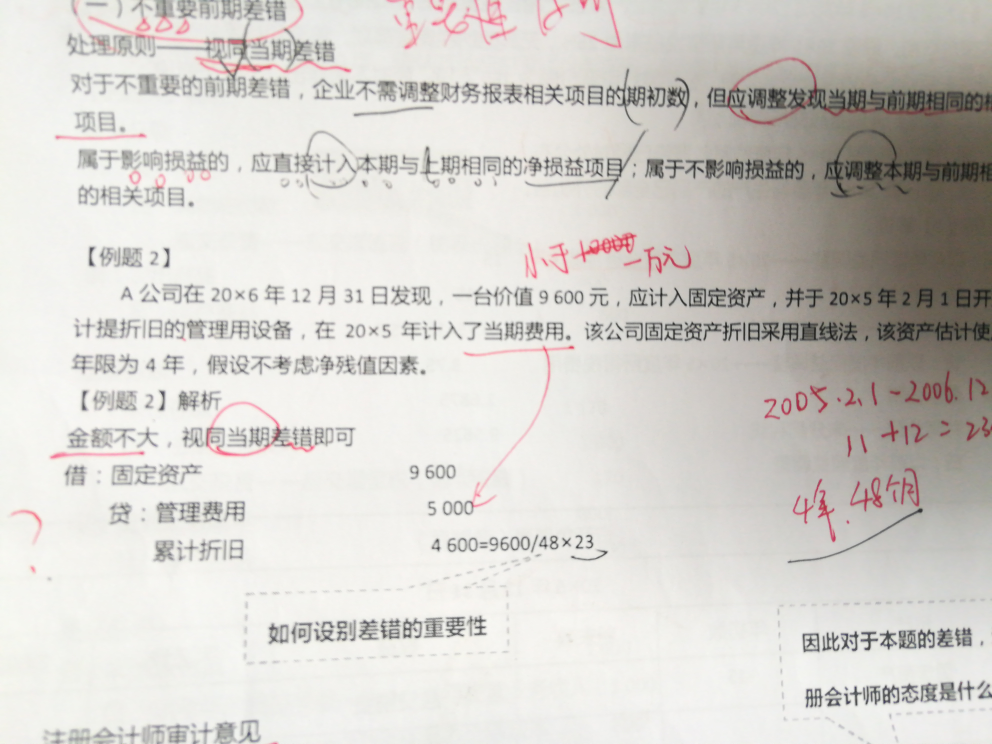 （一）不重要前期差错
处理原则——视同当期差错
对于不重要的前期差错，企业不需调整财务报表相关项目的期初数，但应调整发现当期与前期相同的相
项目。
属于影响损益的，应直接计入本期与上期相同的净损益项目；属于不影响损益的，应调整本期与前期相
的相关项目。
【例题 2】
小于 一万元
A 公司在 20×6 年 12 月 31 日发现，一台价值 9 600 元，应计入固定资产，并于 20×5 年 2 月 1 日开
计提折旧的管理用设备，在 20×5 年计入了当期费用。该公司固定资产折旧采用直线法，该资产估计使
年限为 4 年，假设不考虑净残值因素。
【例题 2】解析
2005.2.1-2006.12
金额不大，视同当期差错即可
11+12=23
借：固定资产 9 600
4年.48个月
贷：管理费用 5 000
?
累计折旧 4 600=9600/48×23
如何设别差错的重要性
因此对于本题的差错，
册会计师的态度是什么
注册会计师审计意见